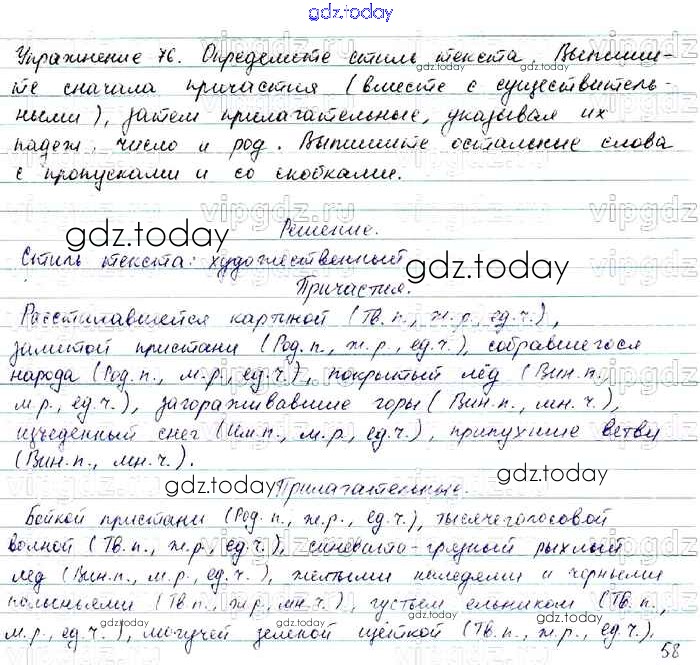 gdz.today
Упражнение 76. Определите стиль текста. Выпиши-
те сначала причастия (вместе с существитель-
ными), затем прилагательные, указывая их
падеж, число и род. Выпишите остальные слова
с пропусками и со скобками.
Решение.
Стиль текста: художественный
Причастия.
Расстилавшейся картиной (Тв.п., ж.р., ед.ч.),
залитой пристани (Род.п., ж.р., ед.ч.), собравшегося
народа (Род.п., м.р., ед.ч.), покрытый лёд (Вин.п.,
м.р., ед.ч.), загораживавшие горы (Вин.п., мн.ч.),
изъеденный снег (Им.п., м.р., ед.ч.), припухшие ветви
(Вин.п., мн.ч.).
Прилагательные.
Бойкой пристани (Род.п., ж.р., ед.ч.), тысячеголосовой
волной (Тв.п., ж.р., ед.ч.), синевато-грязный рыхлый
лед (Вин.п., м.р., ед.ч.), желтыми наледями и черными
полыньями (Тв.п., ж.р., мн.ч.), густым ельником (Тв.п.,
м.р., ед.ч.), могучей зеленой щёткой (Тв.п., ж.р., ед.ч.),
58